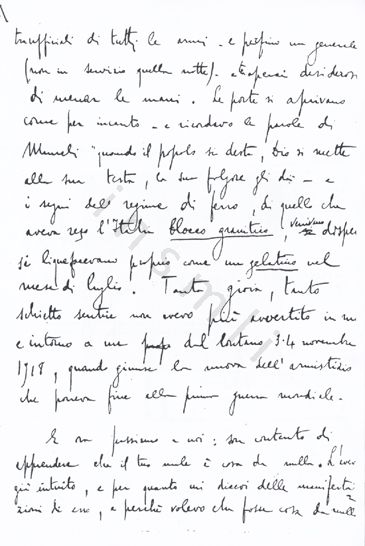 truofficiali di tutti le armi - e perfino un generale
(non in servizio quella notte) - e operai desiderosi
di menar le mani. Le porte si aprivano
come per incanto - e ricordavo le parole di
Mameli "quando il popolo si desta, Dio si mette
alla sua testa, la sua folgore gli dà - e
i segni del regime di ferro, di quello che
aveva reso l'Italia blocco granitico,
si liquefacevano proprio come un gelatino nel
mese di luglio. Tanta gioia, tanto
schietto sentire non avevo più avvertito in me
e intorno a me dal lontano 3-4 novembre
1918, quando giunse la nuova dell'armistizio
che poneva fine alla prima guerra mondiale.
E ora passiamo a noi: son contento di
apprendere che il tuo male è cosa da nulla. L'avevo
già intuito, e per quanto mi dicevi delle manifesta
zioni di esso, e perché volevo che fosse cosa da nulla